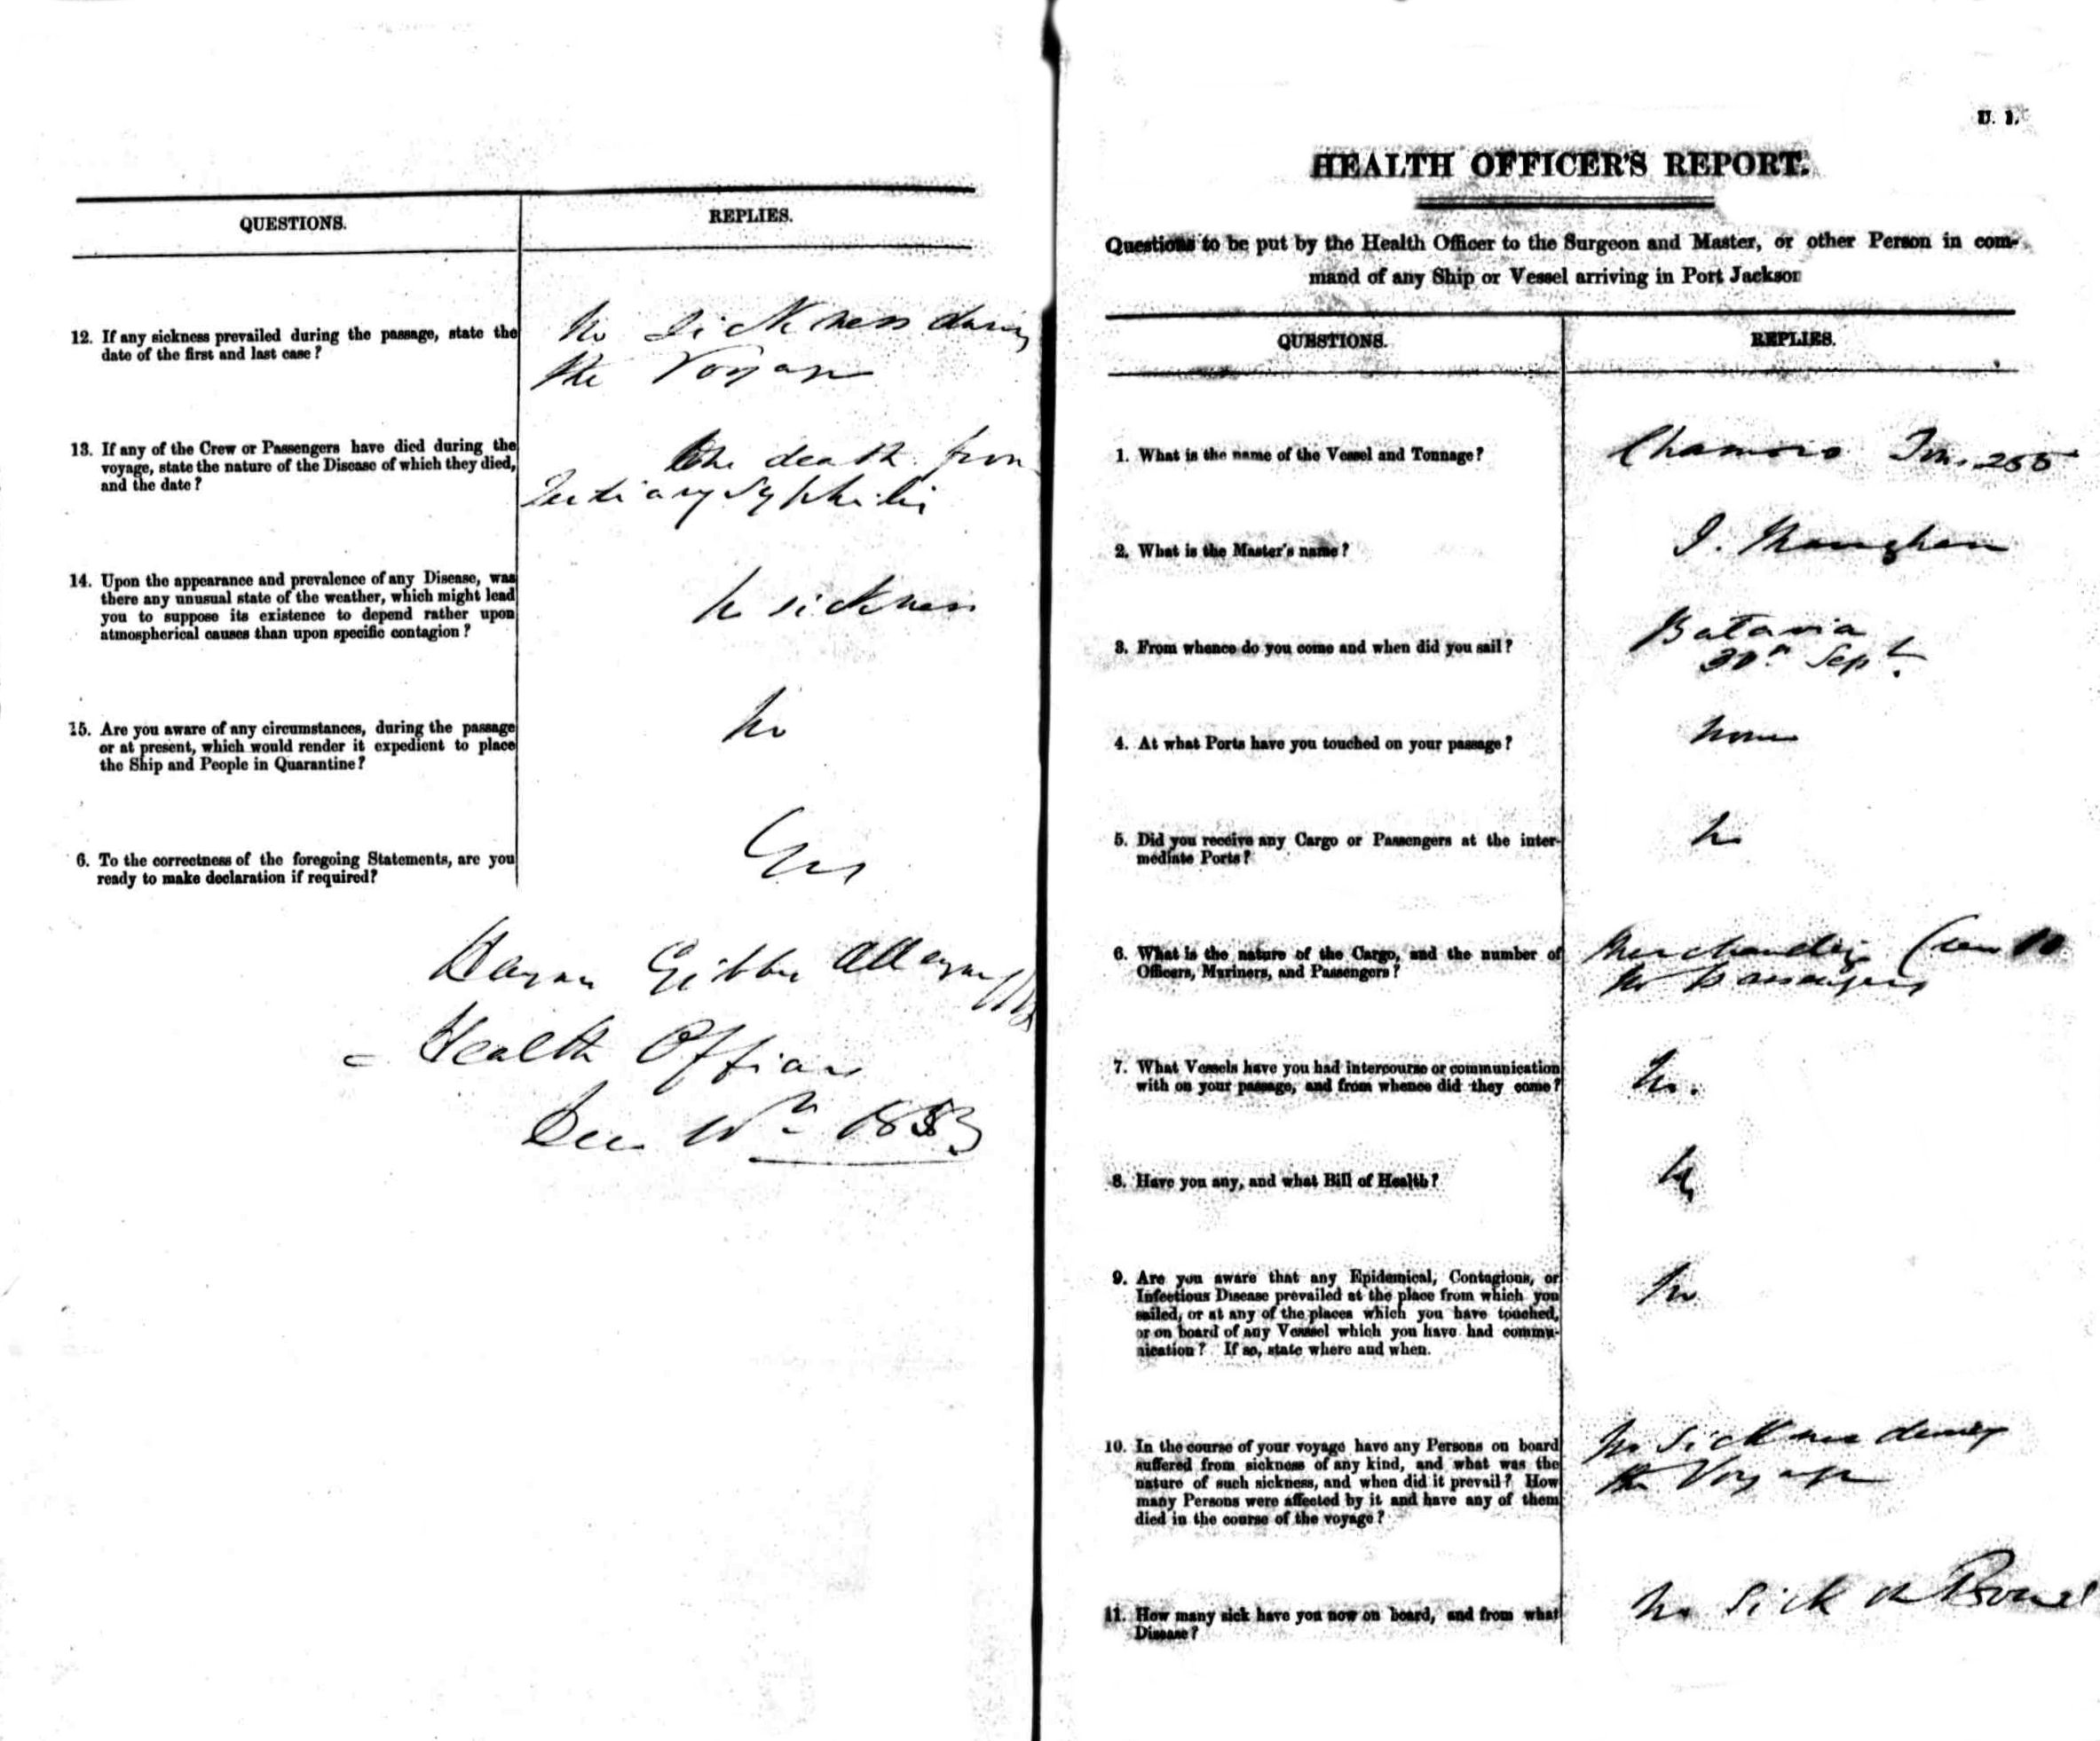 QUESTIONS.
REPLIES.
12. If any sickness prevailed during the passage, state the
date of the first and last case?
No Sickness during
the Voyage
13. If any of the Crew or Passengers have died during the
voyage, state the nature of the Disease of which they died,
and the date?
One death from
Tertiary Syphilis
14. Upon the appearance and prevalence of any Disease, was
there any unusual state of the weather, which might lead
you to suppose its existence to depend rather upon
atmospherical causes than upon specific contagion?
No sickness
15. Are you aware of any circumstances, during the passage
or at present, which would render it expedient to place
the Ship and People in Quarantine?
No
6. To the correctness of the foregoing Statements, are you
ready to make declaration if required?
Yes
Haynes Gibbes Alleyne
Health Officer
Dec 1853
U. 1.
HEALTH OFFICER'S REPORT.
Questions to be put by the Health Officer to the Surgeon and Master, or other Person in com-
mand of any Ship or Vessel arriving in Port Jackson
QUESTIONS.
REPLIES.
1. What is the name of the Vessel and Tonnage?
Chamois Tons 255
2. What is the Master's name?
3. From whence do you come and when did you sail?
Batavia
Sept.
4. At what Ports have you touched on your passage?
none
5. Did you receive any Cargo or Passengers at the inter-
mediate Ports?
No
6. What is the nature of the Cargo, and the number of
Officers, Mariners, and Passengers?
Merchandize Crew 10
No Passengers
7. What Vessels have you had intercourse or communication
with on your passage, and from whence did they come?
No.
8. Have you any, and what Bill of Health?
No
9. Are you aware that any Epidemical, Contagious, or
Infectious Disease prevailed at the place from which you
sailed, or at any of the places which you have touched,
or on board of any Vessel which you have had commu-
nication? If so, state where and when.
No
10. In the course of your voyage have any Persons on board
suffered from sickness of any kind, and what was the
nature of such sickness, and when did it prevail? How
many Persons were affected by it and have any of them
died in the course of the voyage?
No Sickness during
the Voyage
11. How many sick have you now on board, and from what
Disease?
No Sick on Board